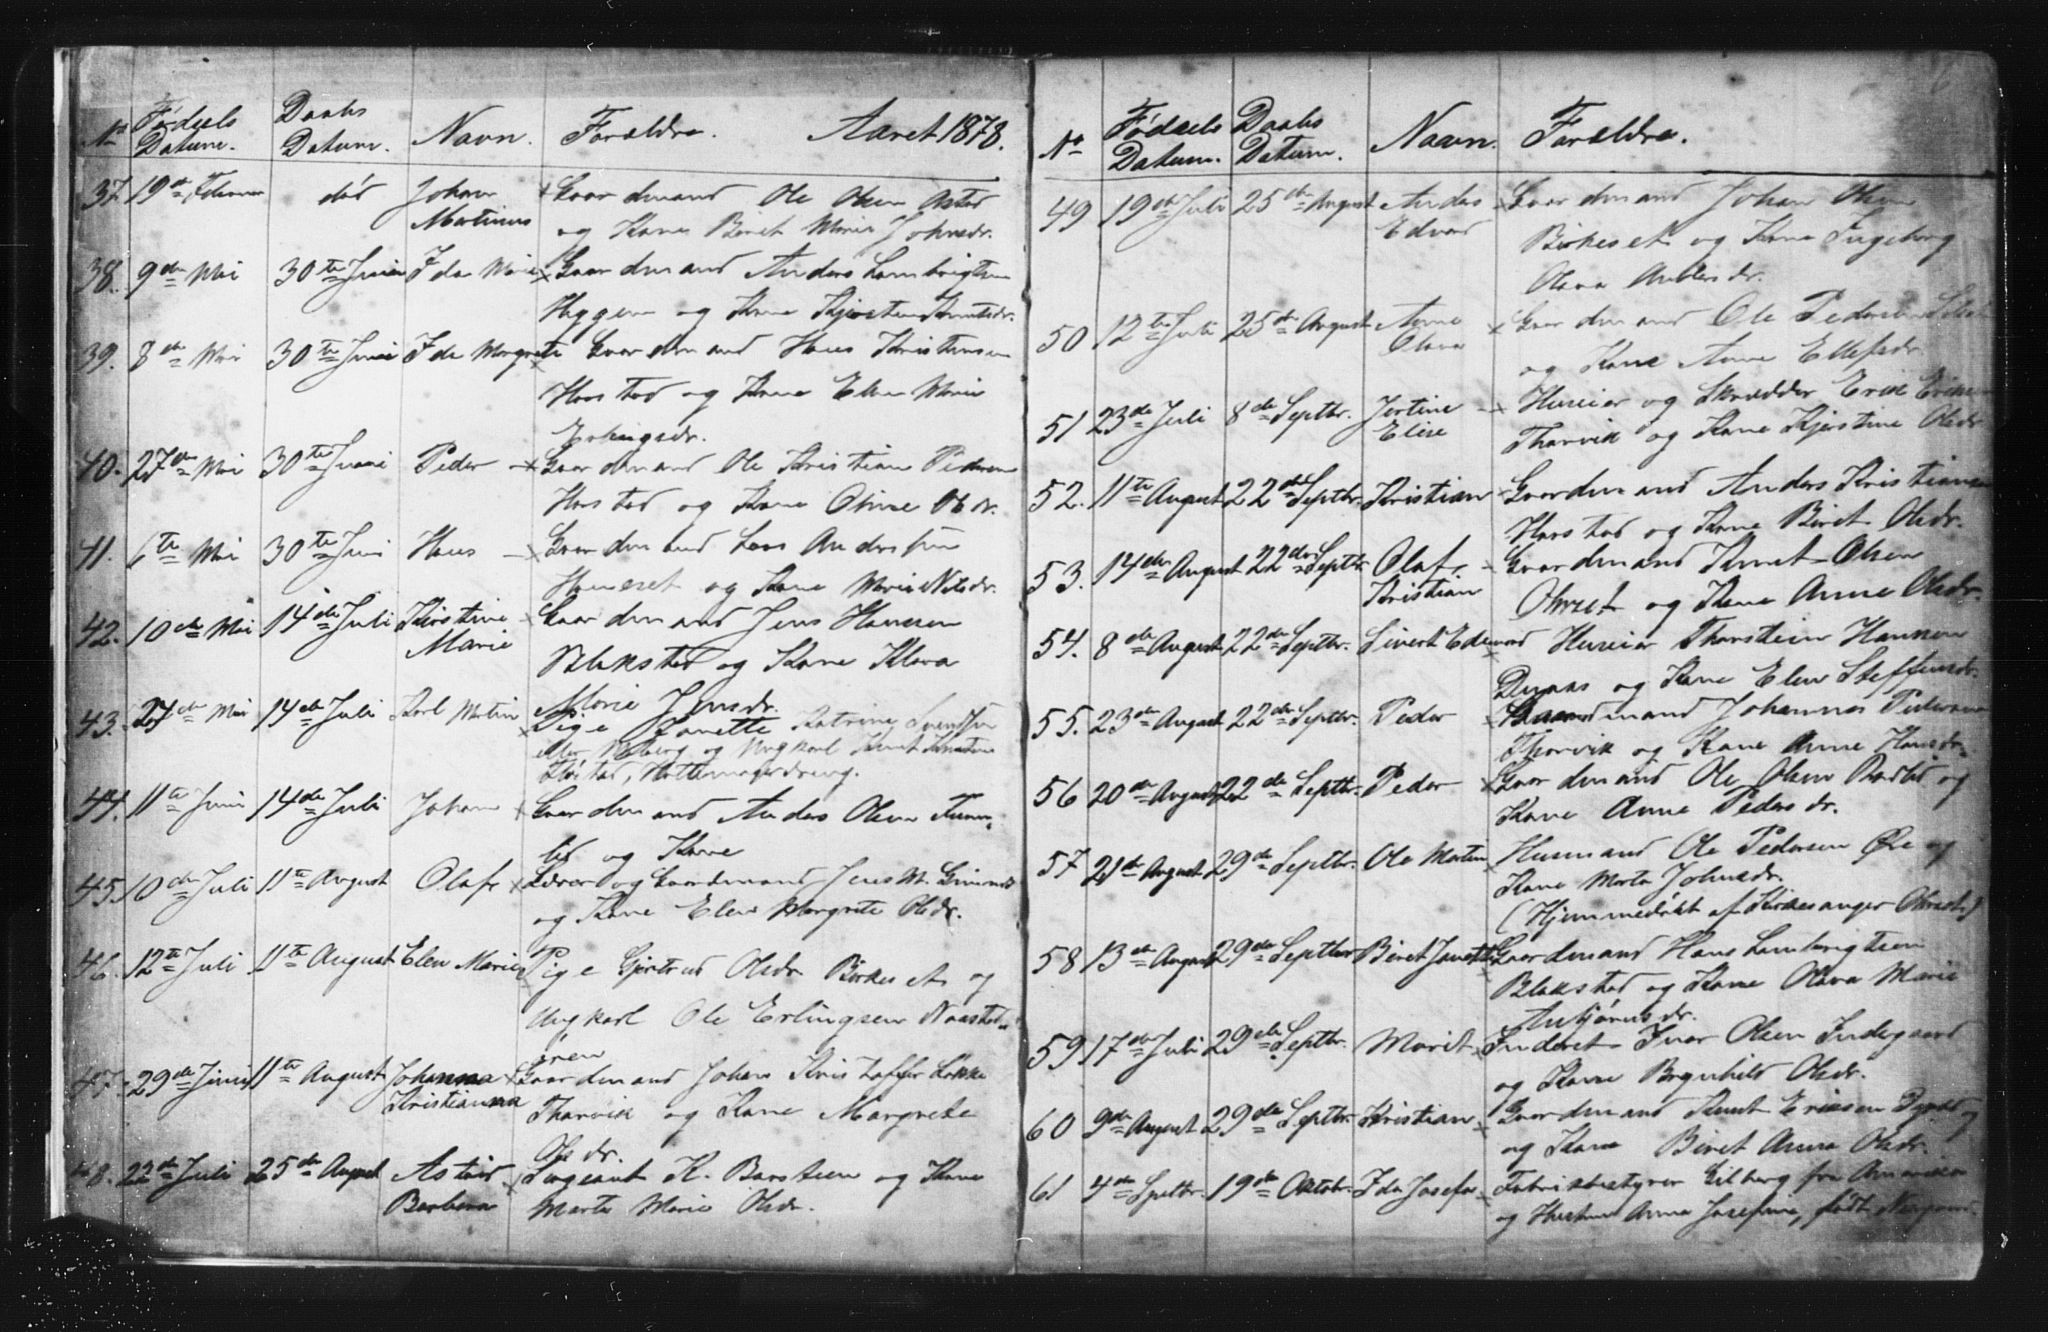 No Fødsels Datum. Daabs Datum. Navn. Forældre. Aaret 1878.
37 19de Februar død Johan Martinus Gaardmand Ole Olsen
og Kone Beret Marie Johnsdr.
38. 9de Mai 30te Juni Ida Marie Gaardmand Anders Lambrigtsen
Hyggen og Kone Kjersten Knutsdr.
39. 8de Mai 30te Juni Ida Margrete Gaardmand Hans Kristensen
Harstad og Kone Elen Marie
Erlingsdr.
40. 27de Mai 30te Juni Peder Gaardmand Ole Kristian Pedersen
Harstad og Kone Oline Olsdr.
41. 6te Mai 30te Juni Hans Gaardmand Lars Andersen
og Kone Marie Nilsdr.
42. 10de Mai 14de Juli Kirstine Marie Gaardmand Jens Hansen
Blakstad og Kone Klara
Marie Jensdr.
43. 27de Mai 14de Juli Karl Martin Pige Lanette Katrine
og Ungkarl Knut
44. 11te Juni 14de Juli Johan Gaardmand Anders Olsen
og Kone
45. 10de Juli 11te August Olaf Lærer og Gaardmand Jens M.
og Kone Elen Margrete Olsdr.
46. 12te Juli 11te August Elen Marie Pige Gjertrud Olsdr Birkeset og
Ungkarl Ole Erlingsen
47. 29de Juni 11te August Johanna Kristianna Gaardmand Johan Kristoffer Løkke
Tharvik og Kone Margrete
Olsdr.
48. 22de Juli 25de August Astrid Barbara Sergeant K. Barsteen og Kone
Marta Marie Olsdr.
No Fødsels Datum. Daabs Datum. Navn. Forældre.
49 19de Juli 25de August Anders Edvard Gaardmand Johan Olsen
Birkeset og Kone Ingeborg
Olava Andersdr.
50 12te Juli 25de August Anne Olava Gaardmand Ole Pedersen
og Kone Anne Ellefsdr.
51 23de Juli 8de Septbr. Jertine Elise Huseier og Skrædder Erik Eriksen
Tharvik og Kone Kjerstine Olsdr
52. 11te August 22de Septbr. Kristian Gaardmand Anders Kristiansen
Harstad og Kone Beret Olsdr.
53. 14de August 22de Septbr Olaf Kristian Gaardmand Knut Olsen
Ohrset og Kone Anne Olsdr.
54. 8de August 22de Septbr. Sivert Edvard Huseier Thorstein Hansen
og Kone Elen Steffensdr.
55. 23de August 22de Septbr. Peder Gaardmand Johannes Pedersen
Tharvik og Kone Anne Hansdr.
56 20de August 22de Septbr. Peder Gaardmand Ole Olsen og
Kone Anne Pedersdr.
57 21de August 29de Septbr. Ole Martin Husmand Ole Pedersen Øre og
Kone Marta Johnsdr.
(Hjemmedøbt af Kirkesanger Ohrset.)
58 13de August 29de Septber Beret Janette Gaardmand Hans Lambrigtsen
Blakstad og Kone Olava Marie
59 17de Juli 29de Septbr. Marit Inderst Ivar Olsen Indergaard
og Kone Brynhild Olsdr.
60 9de August 29de Septbr. Kristian Gaardmand Knut Eriksen
og Kone Beret Anna Olsdr.
61 4de Septbr. 19de Oktobr. Ida Josefa Fabrikbestyrer Gilberg fra Amerika
og Hustru Anna Josefine, født